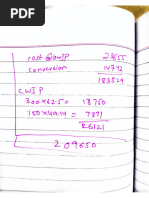 cost of WIP 23655
conversion 14742
183529
CWIP
300×62.5 = 18750
150×49.14 = 7371
26121
209650